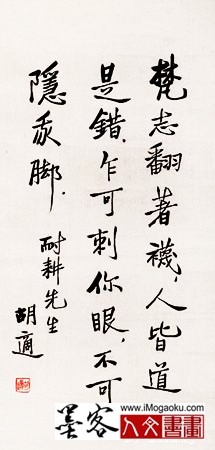 梵志翻著襪，人皆道
是錯．乍可刺你眼，不可
隱我脚．
耐耕先生
胡適
墨客
www.iMogaoku.com
人文書畫